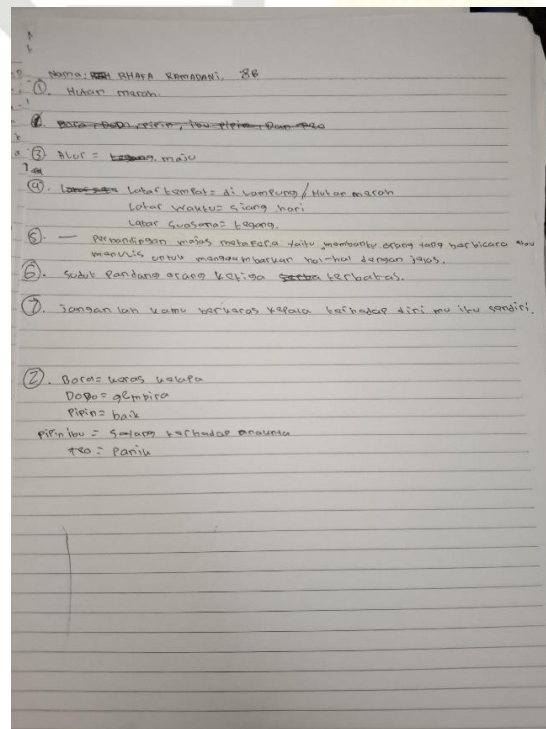 Nama: BHAFA RAMADANI. 8B
①. Hutan marah.
③ Alur = maju
④. Latar tempat = di Lampung / Hutan marah
Latar waktu = siang hari
Latar suasana = tegang.
⑤. — Perbandingan majas metafora yaitu membantu orang yang berbicara atau
menulis untuk menggambarkan hal-hal dengan jelas.
⑥. sudut Pandang orang ketiga terbatas.
⑦. jangan lah kamu berkeras kepala terhadap diri mu itu sendiri.
②. Bora = keras kepala
Dopo = gembira
Pipin = baik
Pipin ibu = sayang terhadap anaknya
= Panik